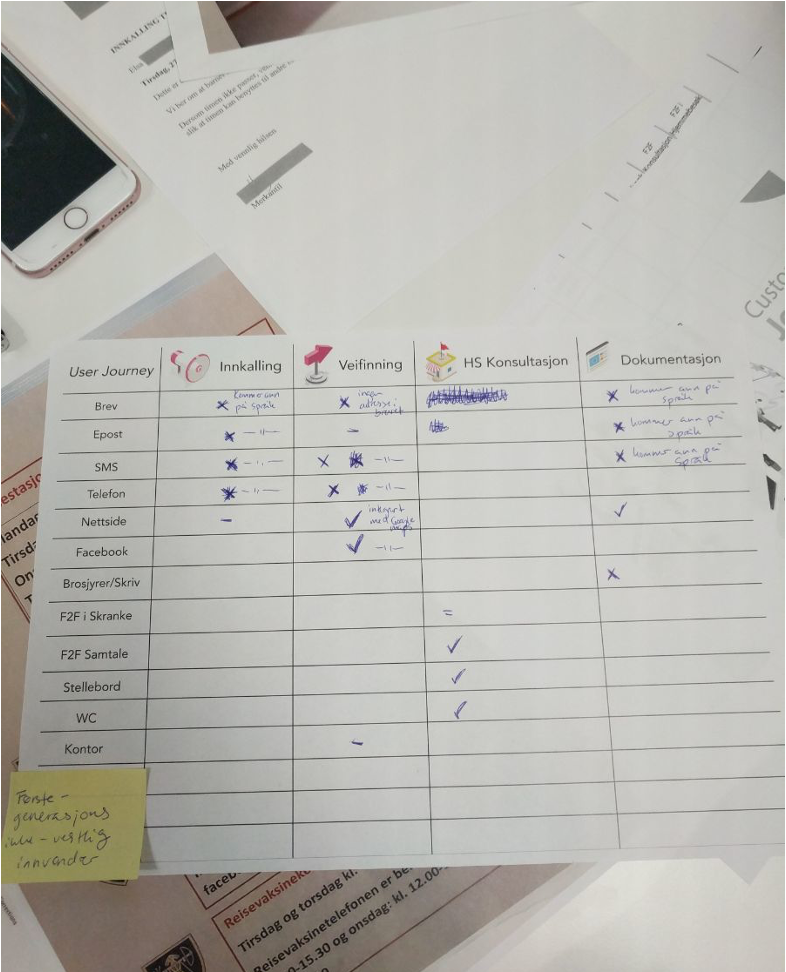 INNKALLING
Tirsdag, 27
Dette er
Vi ber om at
Dersom timen ikke passer,
slik at timen kan benyttes til andre
Med vennlig hilsen
Merkantil
F2F
Konsultasjon
F2F i
Hjemmebesøk
Custo
User Journey Innkalling Veifinning HS Konsultasjon Dokumentasjon
Brev x kommer ann på språk x ingen adresse i brevet x kommer ann på språk
Epost x —〃— – x kommer ann på språk
SMS x —〃— x —〃— x kommer ann på språk
Telefon x —〃— x —〃—
Nettside – ✓ integrert med Google maps ✓
Facebook ✓ —〃—
Brosjyrer/Skriv x
F2F i Skranke =
F2F Samtale ✓
Stellebord ✓
WC ✓
Kontor –
Første-
generasjons
ikke-vestlig
innvandrer
estasjo
andag
Tirsd
On
faceb
Reisevaksineko
Tirsdag og torsdag kl.
Reisevaksinetelefonen er be
0-15.30 og onsdag: kl. 12.00-